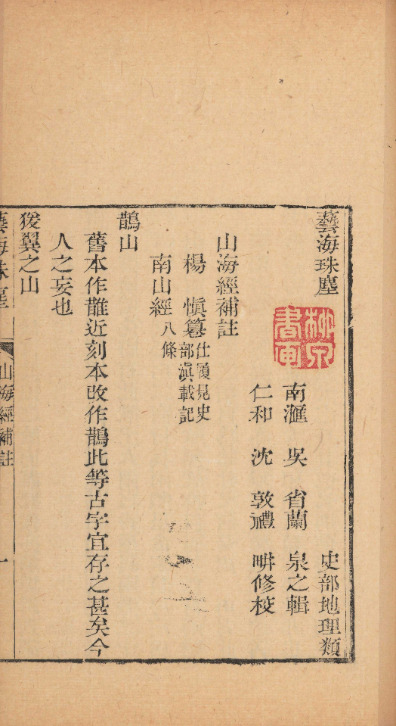 藝海珠塵 史部地理類
南滙 吳 省蘭 泉之輯
仁和 沈 敦禮 畊修校
山海經補註
楊 愼篹 仕履見史部滇載記
南山經 八條
鵲山
舊本作䧿近刻本改作鵲此等古字宜存之甚矣今
人之妄也
猨翼之山
藝海珠塵 山海經補註 一